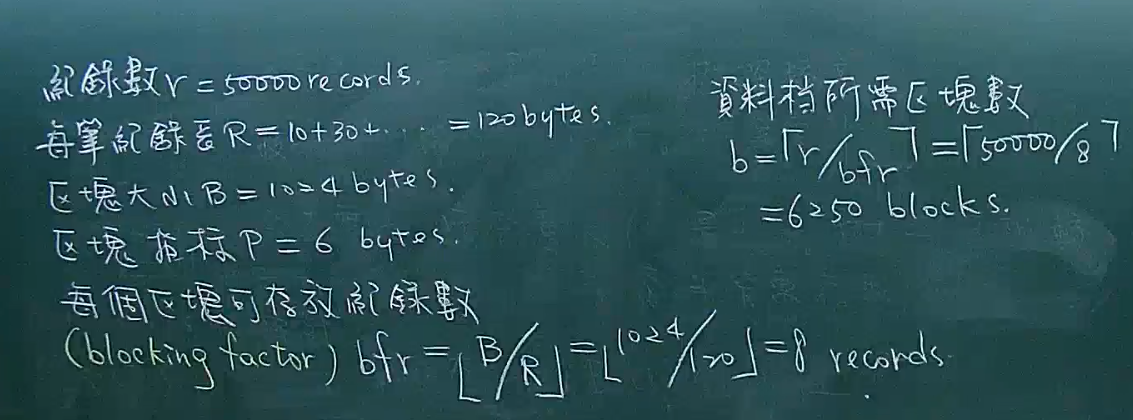 紀錄數r=50000records.
每筆紀錄長R=10+30+....=120bytes.
区塊大小B=1024 bytes.
区塊指标P=6 bytes.
每個区塊可存放紀錄數
(blocking factor) bfr=⌊B/R⌋=⌊1024/120⌋=8 records.
資料档所需区塊數
b=⌈r/bfr⌉=⌈50000/8⌉
=6250 blocks.